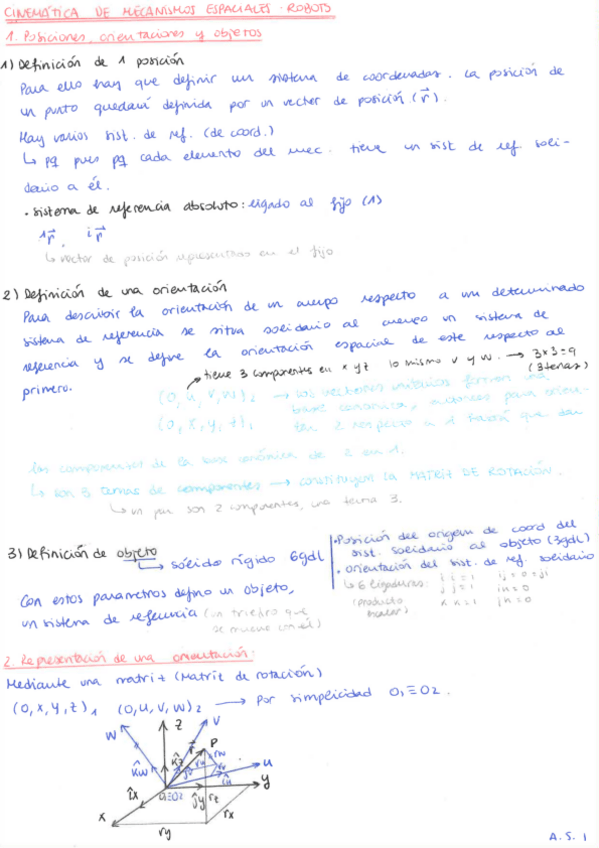 CINEMÁTICA DE MECANISMOS ESPACIALES - ROBOTS
1. Posiciones, orientaciones y objetos
1) Definición de 1 posición
Para ello hay que definir un sistema de coordenadas. La posición de
un punto quedará definida por un vector de posición (r⃗).
Hay varios sist. de ref. (de coord.)
↳ pq pues pq cada elemento del mec. tiene un sist de ref. soli-
dario a él.
• Sistema de referencia absoluto: ligado al fijo (1)
¹r⃗, ⁱr⃗
↳ vector de posición representativo en el fijo
2) Definición de una orientación
Para describir la orientación de un cuerpo respecto a un determinado
sistema de referencia se sitúa solidario al cuerpo un sistema de
referencia y se define la orientación espacial de este respecto al
primero.
tiene 3 componentes en x y z lo mismo v y w. → 3x3=9
(3 ternas)
(0, u, v, w)₂ → los vectores unitarios forman una
base canónica, entonces para orien-
(0, x, y, z)₁
tar 2 respecto a 1 habrá que dar
las componentes de la base canónica de 2 en 1.
↳ son 3 ternas de componentes → constituyen la MATRIZ DE ROTACIÓN.
↳ un par son 2 componentes, una terna 3.
3) Definición de objeto
↳ sólido rígido 6gdl
• Posición del origen de coord del
sist. solidario al objeto (3gdl)
• orientación del sist. de ref. solidario
↳ 6 ligaduras: ii=1 ij=0=ji
(producto jj=1 ik=0
escalar) kk=1 jk=0
Con estos parámetros defino un objeto,
un sistema de referencia (un triedro que
se mueve con él)
2. Representación de una orientación:
Mediante una matriz (Matriz de rotación)
(0, x, y, z)₁ (0, u, v, w)₂ → Por simplicidad O₁≡O₂.
z
v
w
P
r⃗
rw
u
k̂w
k̂z
y
îx
O₁≡O₂
ĵy
rz
x
rx
ry
A.S. 1